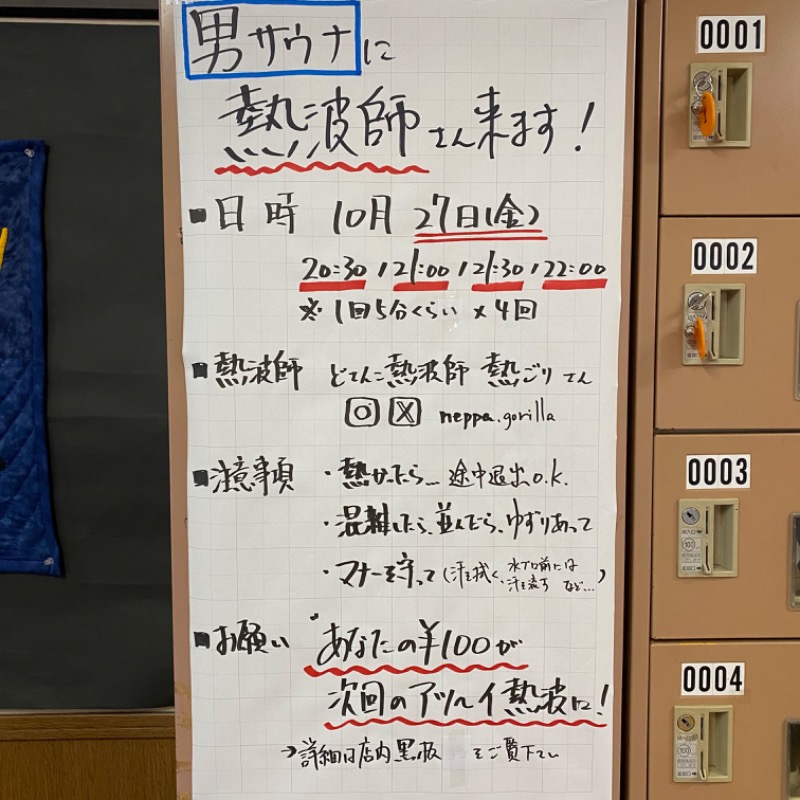 男サウナに
熱波師さん来ます!
■日時 10月27日(金)
20:30/21:00/21:30/22:00
※1回5分くらい×4回
■熱波師 どてんこ熱波師 熱ごりさん
neppa.gorilla
■注意事項 ・熱かったら…途中退出o.k.
・混雑したら、並んだら、ゆずりあって
・マナーを守って(汗を拭く、水プロ前には
汗を流す など…)
■お願い "あなたの¥100が
次回のアツ〜イ熱波に!
→詳細は店内黒板 をご覧下さい
0001
0002
0003
100
0004